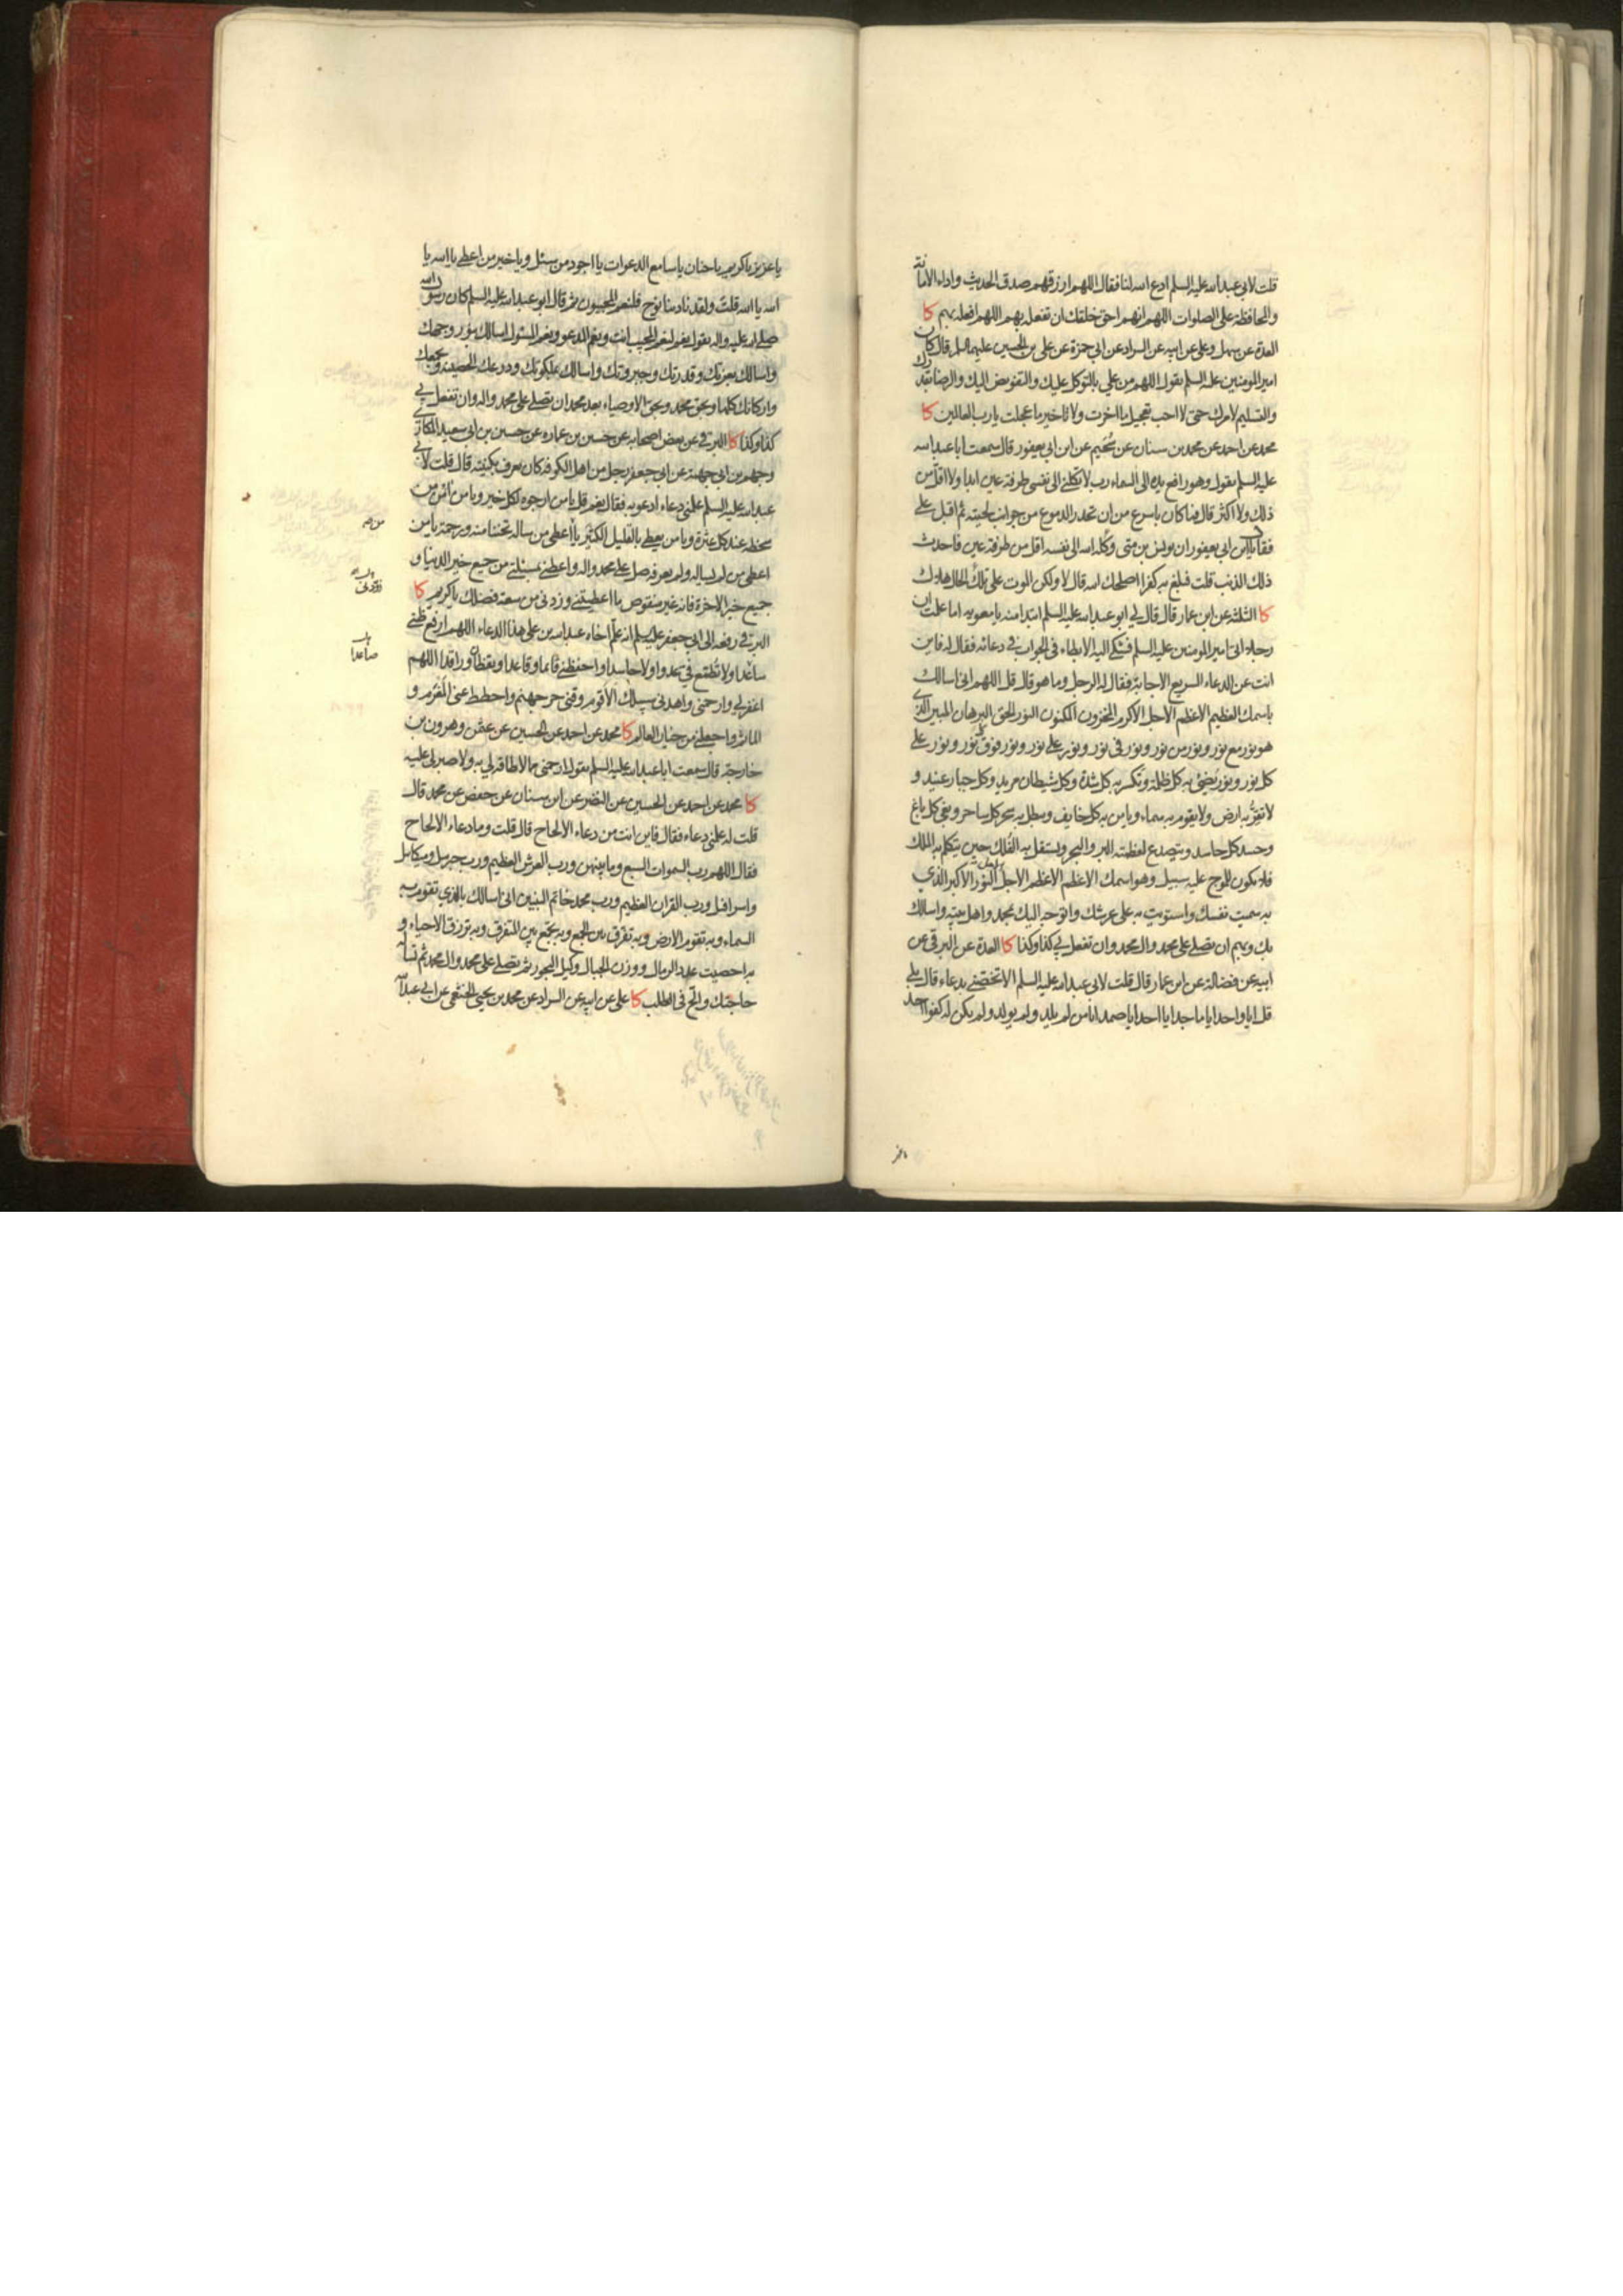 قلت لابي عبدالله عليه السلم ادع الله لنا فقال اللهم ارزقهم صدق الحديث واداء الامانة
والمحافظة على الصلوات اللهم انهم احق خلقك ان تفعله بهم اللهم افعله بهم كا
العدة عن سهل وعلي عن ابيه عن السراد عن ابي حمزة عن علي بن الحسين عليهما السلم قال كان
امير المومنين عليه السلم يقول اللهم من علي بالتوكل عليك والتفويض اليك والرضا بقدرك
والتسليم لامرك حتى لا احب تعجيل ما اخرت ولا تاخير ما عجلت يا رب العالمين كا
محمد عن احمد عن محمد بن سنان عن سُحَيم عن ابن ابي يعفور قال سمعت ابا عبدالله
عليه السلم يقول وهو رافع يده الى السماء رب لا تكلني الى نفسي طرفة عين ابدا ولا اقل من
ذلك ولا اكثر قال فما كان باسرع من ان تحدر الدموع من جوانب لحيته ثم اقبل علي
فقال يا ابن ابي يعفور ان يونس بن متى وكله الله الى نفسه اقل من طرفة عين فاحدث
ذلك الذنب قلت فبلغ به كفرا اصلحك الله قال لا ولكن الموت على تلك الحال هلاك
كا الثلثة عن ابن عمار قال قال لي ابو عبدالله عليه السلم ابتداء منه يا معويه اما علمت ان
رجلا اتى امير المومنين عليه السلم فشكى اليه الابطاء في الجواب في دعائه فقال له فاين
انت عن الدعاء السريع الاجابة فقال له الرجل وما هو قال قل اللهم اني اسالك
باسمك العظيم الاعظم الاجل الاكرم المخزون المكنون النور الحق البرهان المبين الذي
هو نور مع نور ونور من نور ونور في نور ونور على نور ونور فوق كل نور ونور على
كل نور ونور يُضيئ به كل ظلمة وتكسر به كل شدة وكل شيطان مريد وكل جبار عنيد و
لا تقرّ به ارض ولا يقوم به سماء ويامن به كل خايف ويبطل به سحر كل ساحر وبغي كل باغ
وحسد كل حاسد ويتصدع لعظمته البر والبحر ويستقل به الفُلك حين يتكلم به الملك
فلا يكون للموج عليه سبيل وهو اسمك الاعظم الاعظم الاجل الاجل النور الاكبر الذي
به سميت نفسك واستويت به على عرشك واتوجه اليك بمحمد واهل بيته واسالك
بك وبهم ان تصلي على محمد وال محمد وان تفعل بي كذا وكذا كا العدة عن البرقي عن
ابيه عن فضالة عن ابن عمار قال قلت لابي عبدالله عليه السلم الا تخصني بدعاء قال بلى
قل يا واحد يا ماجد يا احد يا صمد يا من لم يلد ولم يولد ولم يكن له كفوا احد
يا عزيز يا كريم يا حنان يا سامع الدعوات يا اجود من سئل ويا خير من اعطى يا الله يا
الله يا الله قلتَ ولقد نادينا نوح فلنعم المجيبون ثم قال ابو عبدالله عليه السلم كان رسول الله
صلى الله عليه واله يقول نعم لنعم المجيب انت ونعم المدعو ونعم المسئول اسالك بنور وجهك
واسالك بعزتك وقدرتك وجبروتك واسالك بملكوتك ودرعك الحصينة وبجمعك
واركانك كلها وبحق محمد وبحق الاوصياء بعد محمد ان تصلي على محمد واله وان تفعل بي
كذا وكذا كا البرقي عن بعض اصحابه عن حسين بن عماره عن حسين بن ابي سعيد المكاري
وجهم بن ابي جهمة عن ابي جعفر رجل من اهل الكوفه كان يعرف بكنيته قال قلت لابي
عبدالله عليه السلم علمني دعاء ادعو به فقال نعم قل يا من ارجوه لكل خير ويا من امن من
سخطه عند كل عثرة ويا من يعطي بالقليل الكثير يا من اعطى من ساله تحننا منه ورحمة يا من
اعطى من لم يساله ولم يعرفه صل على محمد واله واعطني بمسئلتي من جميع خير الدنيا و
جميع خير الاخرة فانه غير منقوص ما اعطيتني وزدني من سعة فضلك يا كريم كا
البرقي رفعه الى ابي جعفر عليه السلم انه علّم اخاه عبدالله بن علي هذا الدعاء اللهم ارفع ظني
صاعدا ولا تُطمع في عدوا ولا حاسدا واحفظني قائما وقاعدا ويقظان وراقدا اللهم
اغفر لي وارحمني واهدني سبيلك الاقوم وقني حر جهنم واحطط عني المغرم و
الماثم واجعلني من خيار العالم كا محمد عن احمد عن الحسين عن عثمن وهرون بن
خارجة قال سمعت ابا عبدالله عليه السلم يقول ارحمني مما لا طاقة لي به ولا صبر لي عليه
كا محمد عن احمد عن الحسين عن النضر عن ابن سنان عن حفص عن محمد قال
قلت له علمني دعاء فقال فاين انت من دعاء الالحاح قال قلت وما دعاء الالحاح
فقال اللهم رب السموات السبع وما بينهن ورب العرش العظيم ورب جبرئيل وميكائيل
واسرافيل ورب القران العظيم ورب محمد خاتم النبيين اني اسالك بالذي تقوم به
السماء وبه تقوم الارض وبه تفرق بين الجمع وبه تجمع بين المتفرق وبه ترزق الاحياء و
به احصيت عدد الرمال ووزن الجبال وكيل البحور ثم تصلي على محمد وال محمد ثم تساله
حاجتك والح في الطلب كا علي عن ابيه عن السراد عن محمد بن يحيى الخثعمي عن ابي عبدالله
صاعدا